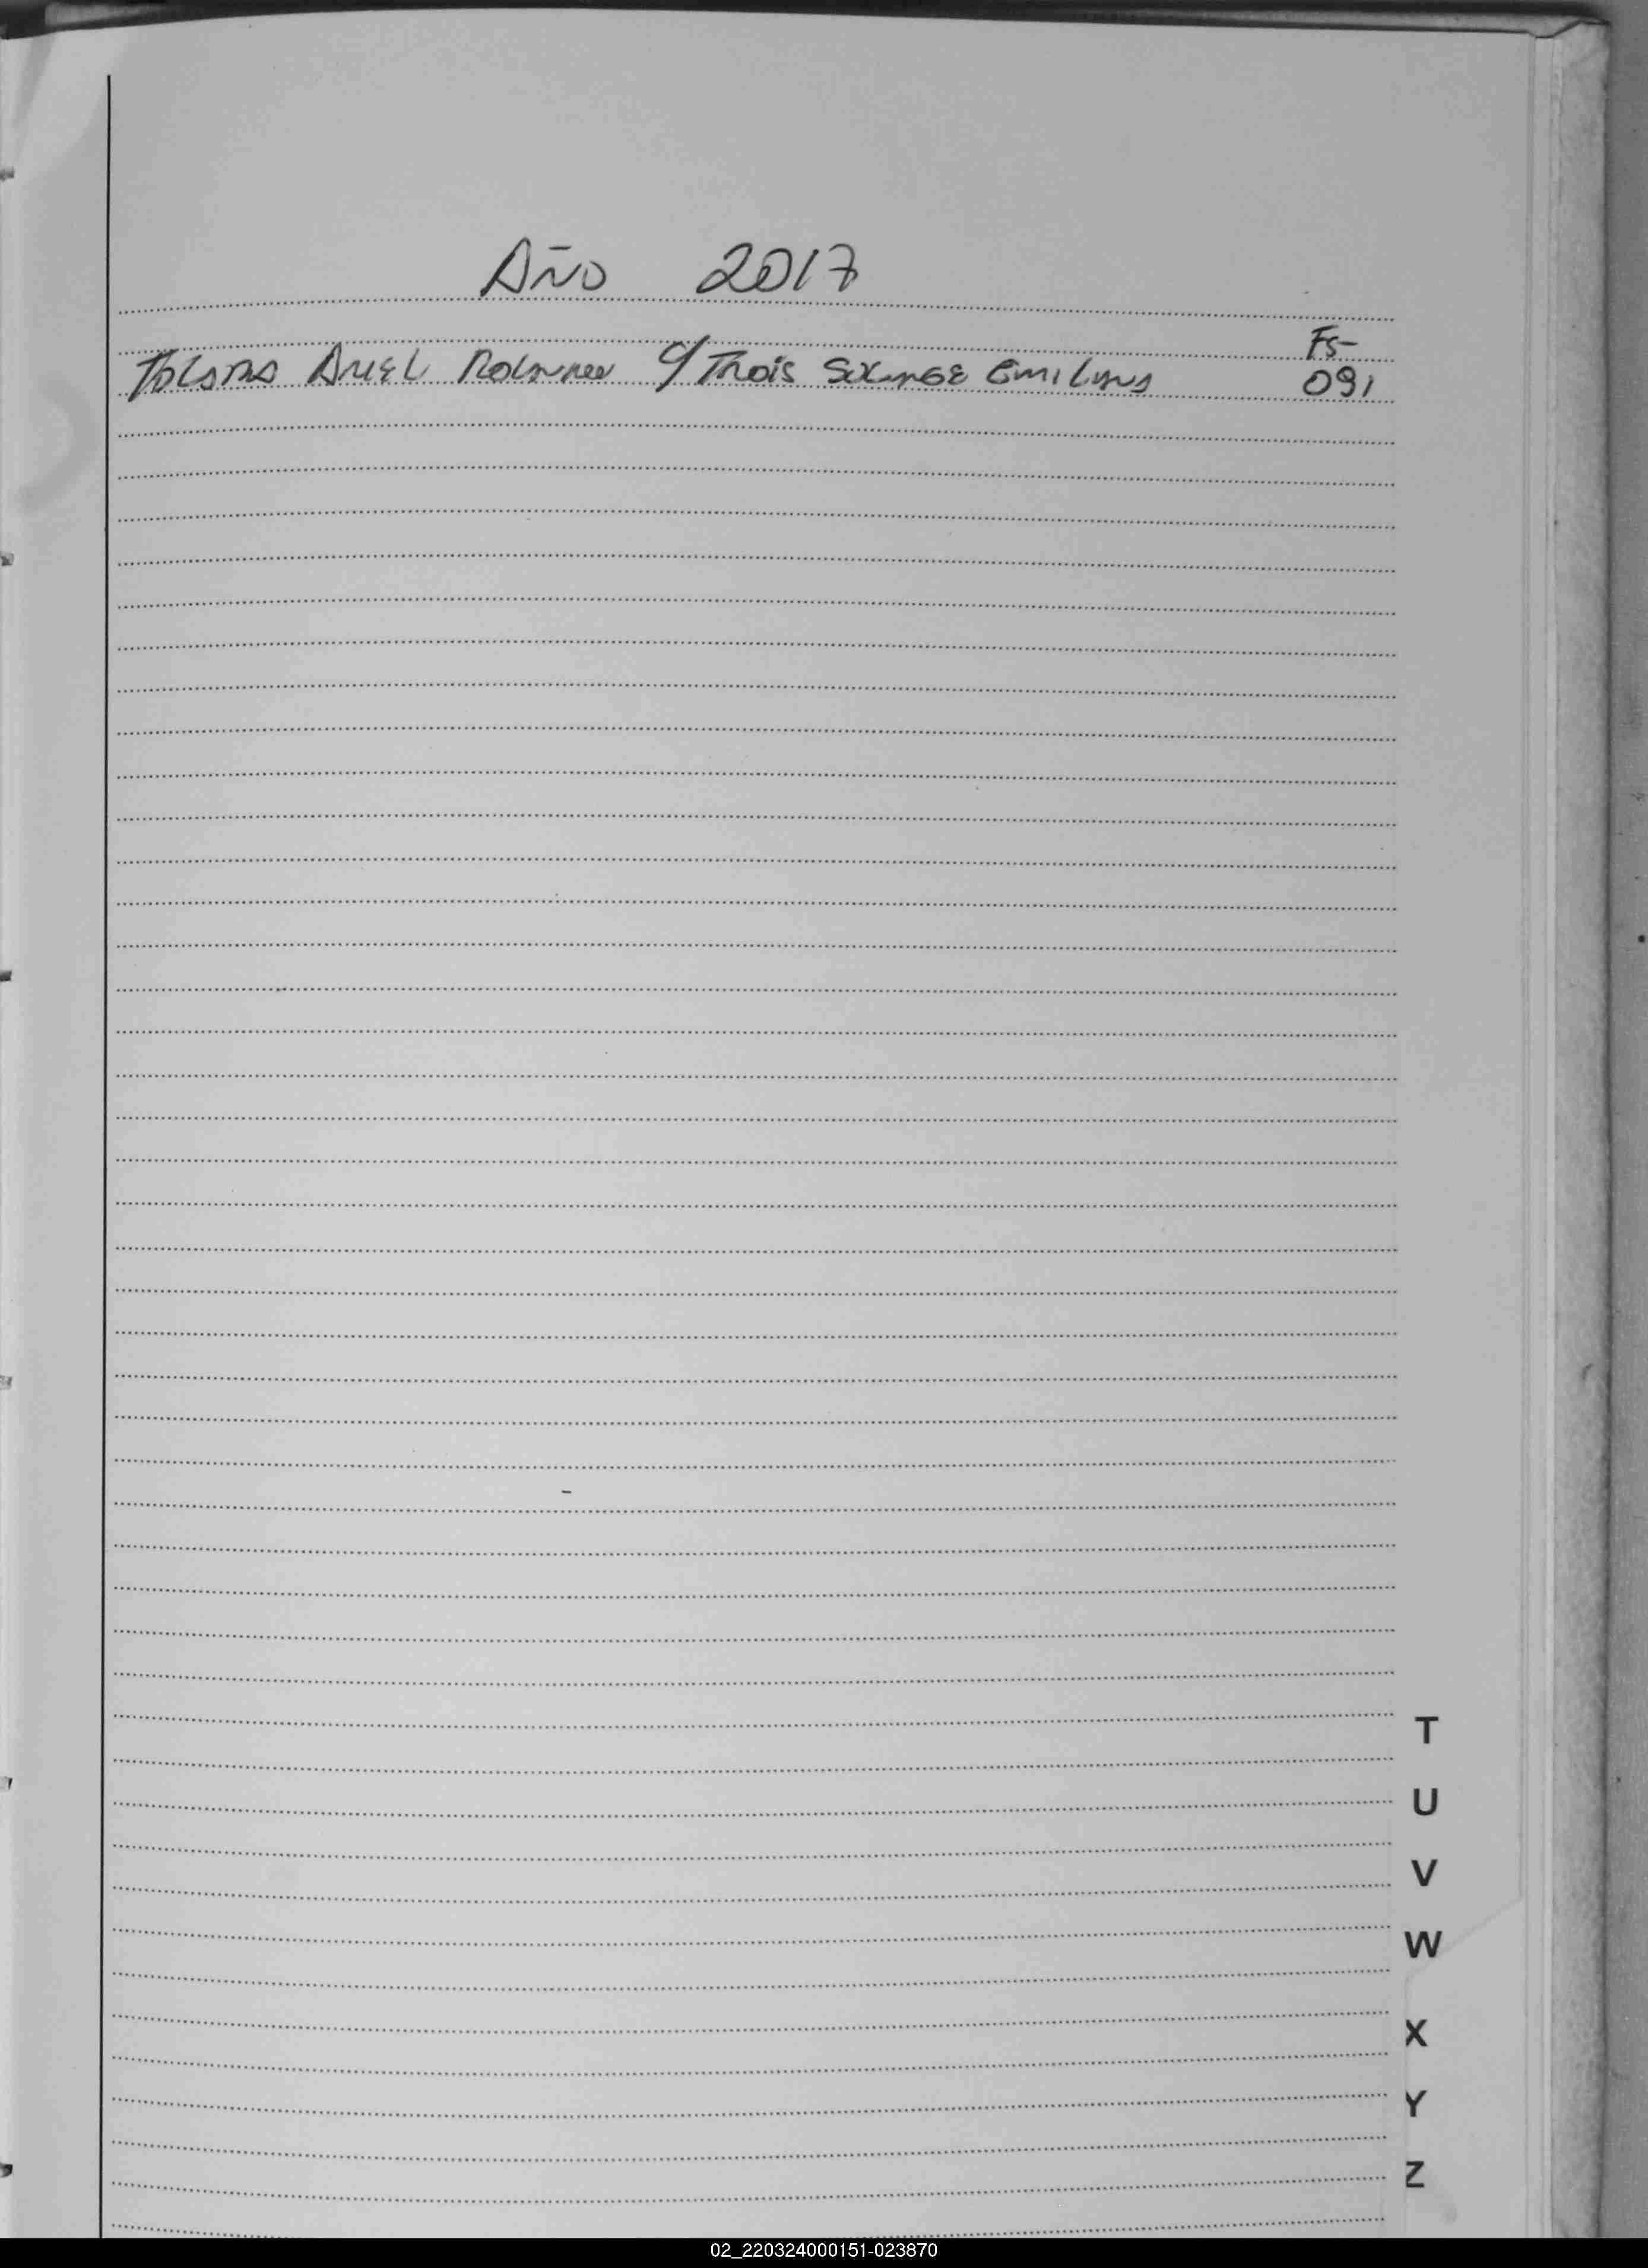 Año 2017
Fs-
Tolosa Ariel Rolando c/ Trois Solange Emiliana 091
T
U
V
W
X
Y
Z
02_220324000151-023870